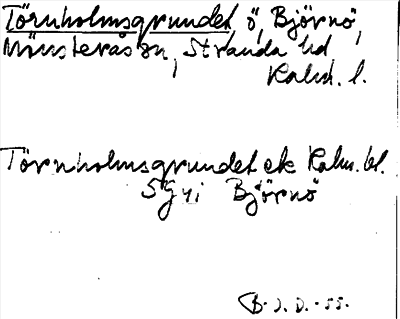 Törnholmsgrundet, ö, Björnö,
Mönsterås sn, Stranda hd
Kalm. l.
Törnholmsgrundet ek Kalm. bl.
5 g y i Björnö
B. J. D. -55.